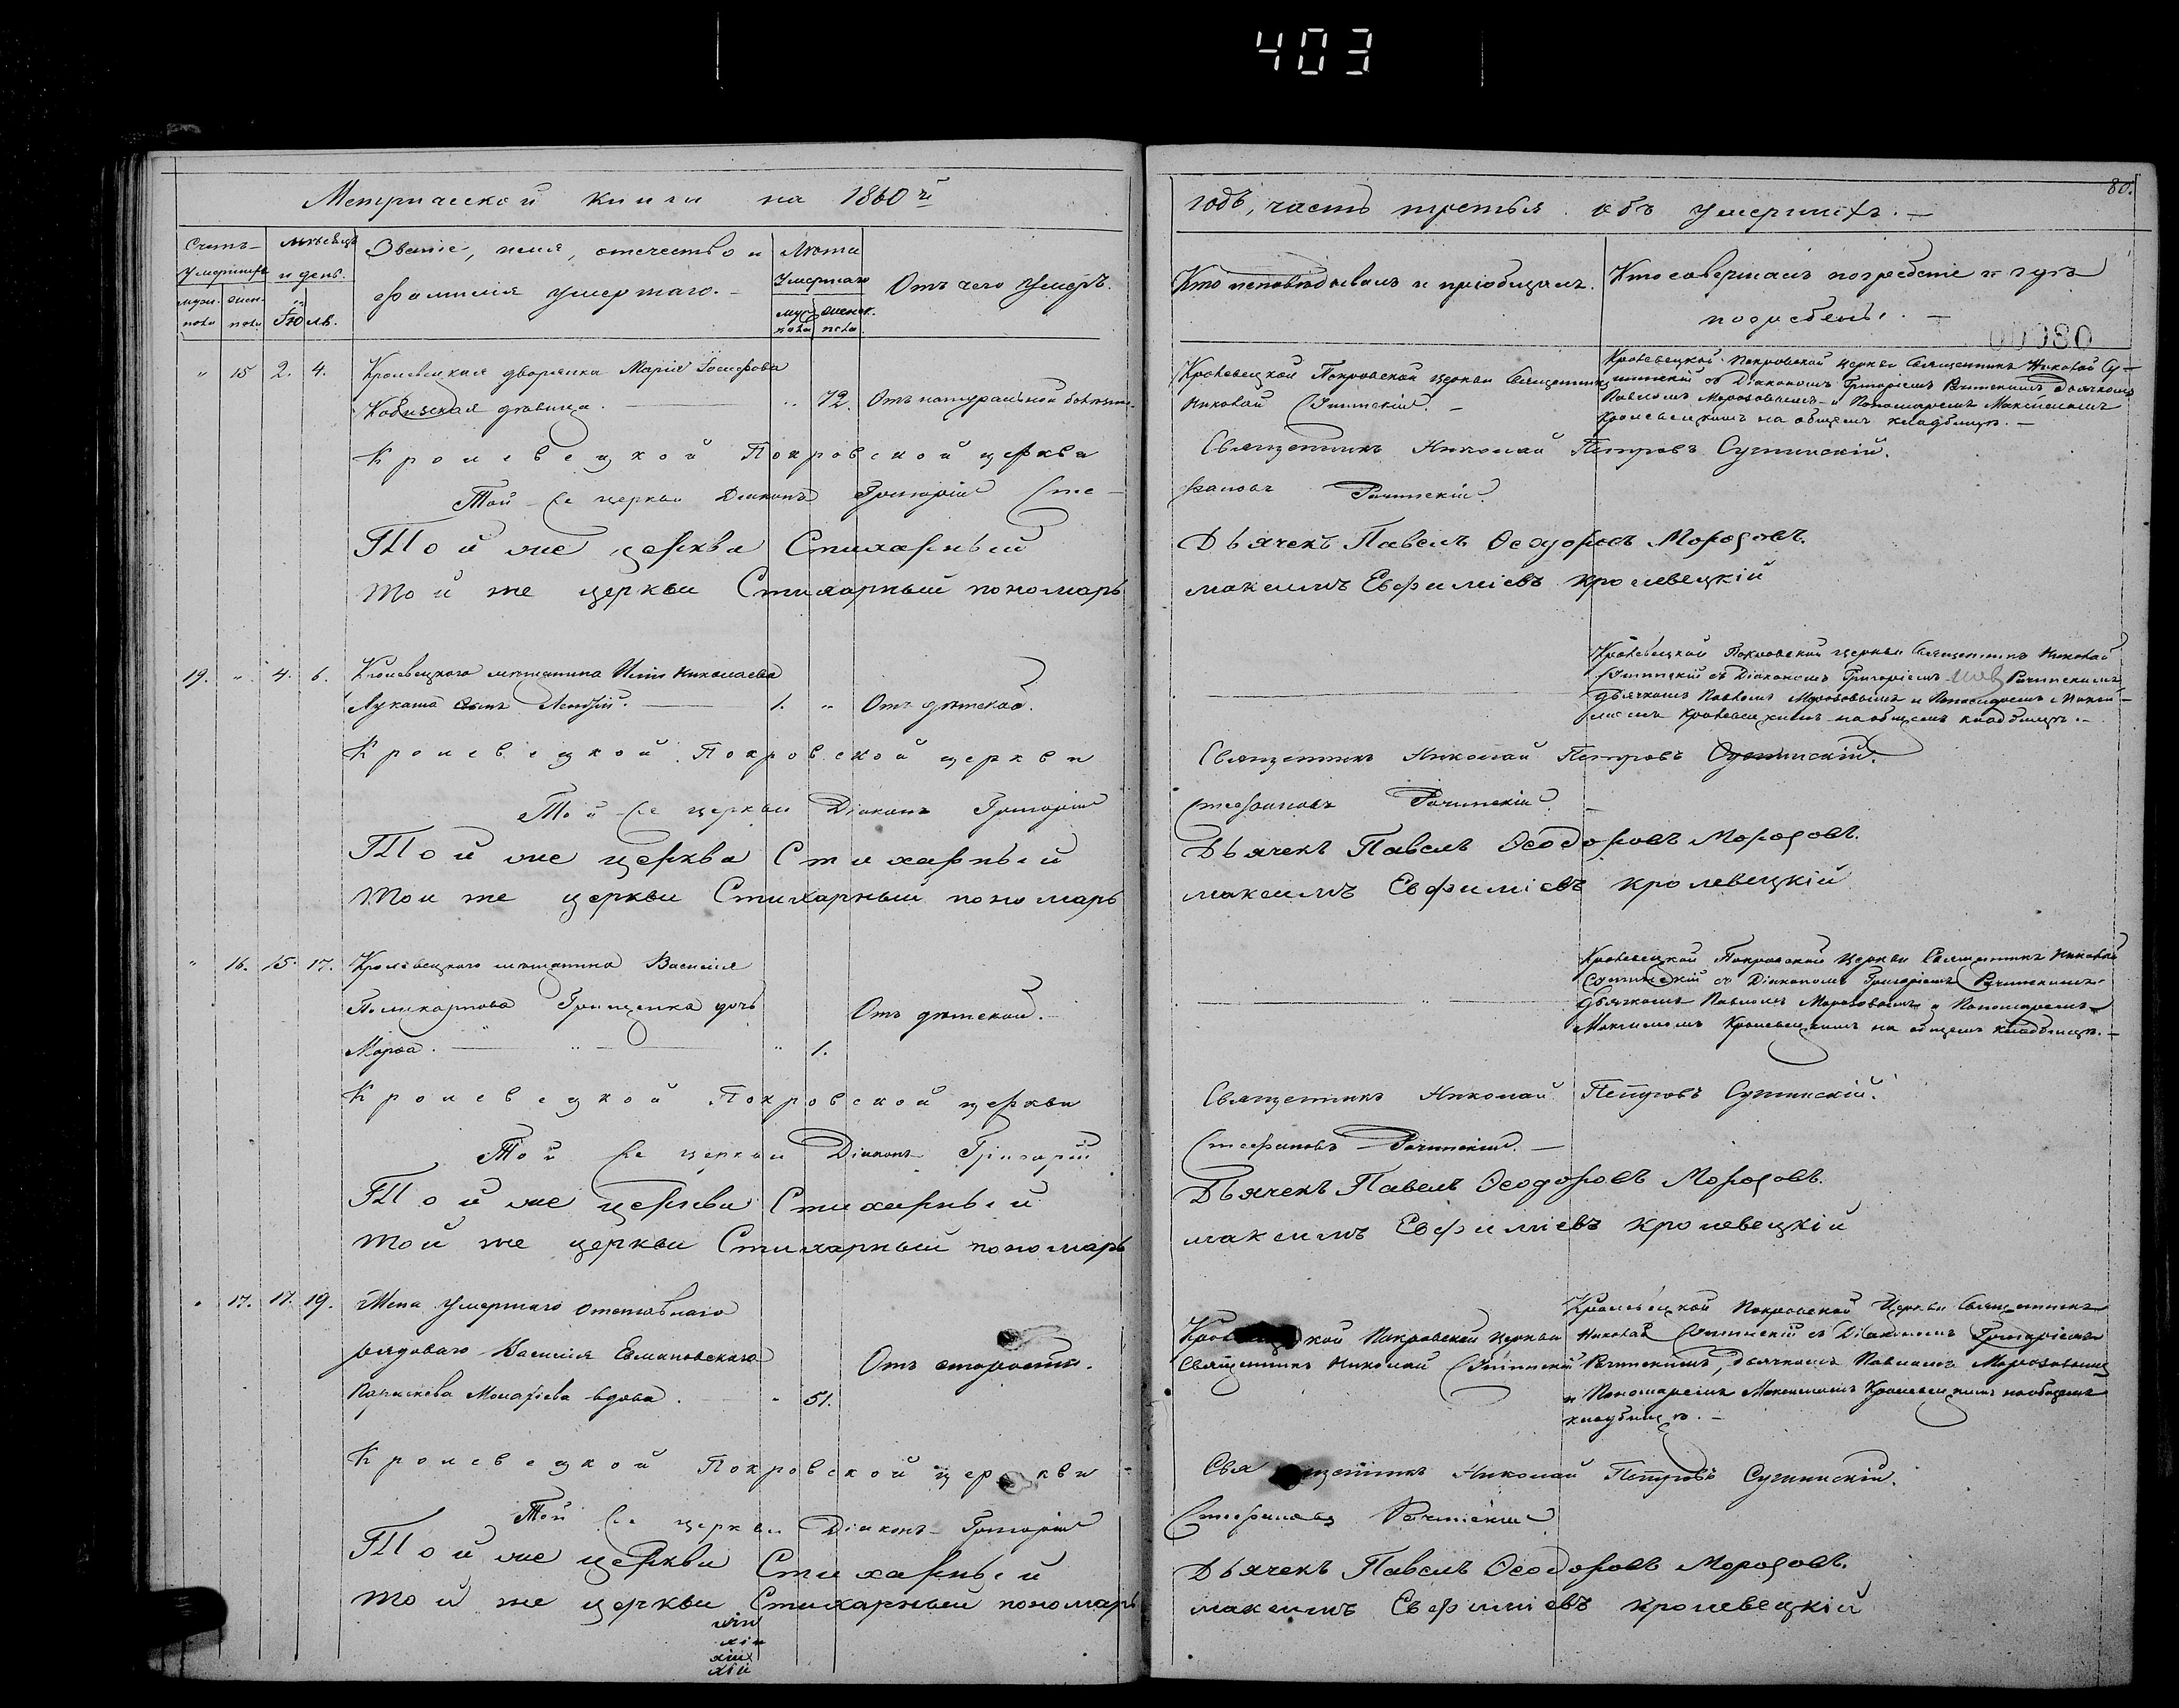 403
Метрической книги на 1860й
Счетъ
умершихъ
мѣсяцъ
и день.
Званіе, имя, отечество и
фамилія умершаго.
Лѣта
умершаго
Отъ чего умеръ.
муж.
пола
женс.
пола
Іюль.
муж.
пола
женск.
пола
" 15 2. 4. Кролевецкая дворянка Марія Іосифова
дѣвица. " 72. Отъ натуральной болѣзни.
Кролевецкой Покровской церкви
Той же церкви Діаконъ Григорій Сте-
Той же церкви Стихарный
той же церкви Стихарный пономарь
19. " 4. 6. Кролевецкаго мѣщанина Николаева
Лукаша сынъ 1. " Отъ дѣтской.
Кролевецкой Покровской церкви
Той же церкви Діаконъ Григорій
Той же церкви Стихарный
той же церкви Стихарный пономарь
" 16. 15. 17. Кролевецкаго мѣщанина Василія
Поликарпова Грищенка дочь Отъ дѣтской.
Марѳа. " 1.
Кролевецкой Покровской церкви
Той же церкви Діаконъ Григорій
Той же церкви Стихарный
той же церкви Стихарный пономарь
" 17. 17. 19. Жена умершаго отставнаго
рядоваго Василія Отъ старости.
вдова. " 51.
Кролевецкой Покровской церкви
Той же церкви Діаконъ Григорій
Той же церкви Стихарный
той же церкви Стихарный пономарь
80.
годъ, часть третья объ умершихъ.
Кто исповѣдывалъ и пріобщалъ.
Кто совершалъ погребеніе и гдѣ
погребены.
00080
Кролевецкой Покровской церкви Священникъ
Николай
Кролевецкой Покровской церкви Священникъ Николай
съ Діакономъ Григоріемъ Рачинскимъ Дьячкомъ
Павломъ Морозовымъ и Пономаремъ Максимомъ
Кролевецкимъ на общемъ кладбищѣ.
Священникъ Николай Петровъ
фановъ Рачинскій
Дьячекъ Павелъ Ѳеодоровъ Морозовъ.
максимъ Евфиміевъ кролевецкій
Кролевецкой Покровской церкви Священникъ Николай
съ Діакономъ Григоріемъ Рачинскимъ
Дьячкомъ Павломъ Морозовымъ и Пономаремъ Макси-
момъ Кролевецкимъ на общемъ кладбищѣ.
Священникъ Николай Петровъ
Стефановъ Рачинскій
Дьячекъ Павелъ Ѳеодоровъ Морозовъ.
максимъ Евфиміевъ кролевецкій
Кролевецкой Покровской церкви Священникъ Николай
съ Діакономъ Григоріемъ Рачинскимъ
Дьячкомъ Павломъ Морозовымъ и Пономаремъ
Максимомъ Кролевецкимъ на общемъ кладбищѣ.
Священникъ Николай Петровъ
Стефановъ Рачинскій.
Дьячекъ Павелъ Ѳеодоровъ Морозовъ.
максимъ Евфиміевъ кролевецкій
кой Покровской церкви
Священникъ Николай
Кролевецкой Покровской Церкви Священникъ
Николай съ Діакономъ Григоріемъ
Рачинскимъ, Дьячкомъ Павломъ Морозовымъ
и Пономаремъ Максимомъ Кролевецкимъ на общемъ
кладбищѣ.
Священникъ Николай Петровъ
Стефановъ Рачинскій
Дьячекъ Павелъ Ѳеодоровъ Морозовъ.
максимъ Евфиміевъ кролевецкій